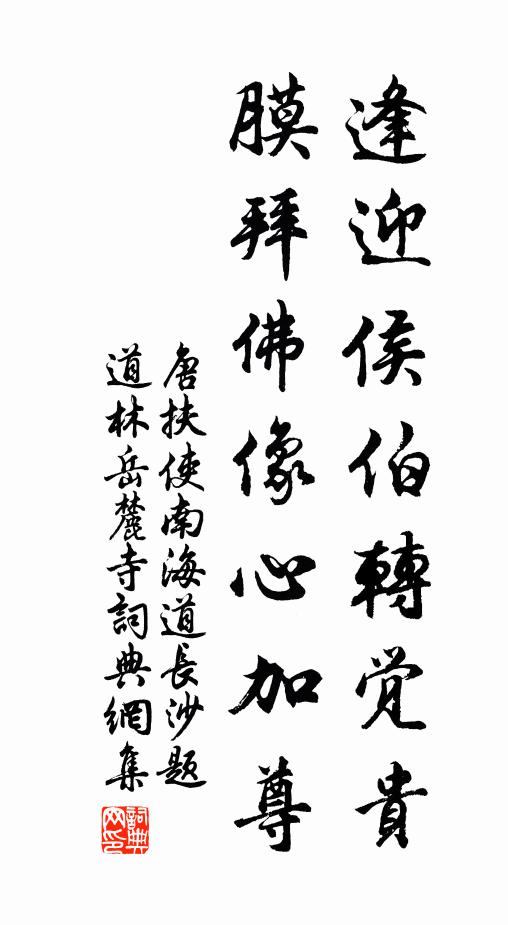 逢迎侯伯轉覺貴
膜拜佛像心加尊
唐扶使南海道長沙題
道林岳麓寺詞典網集
詞典
网印